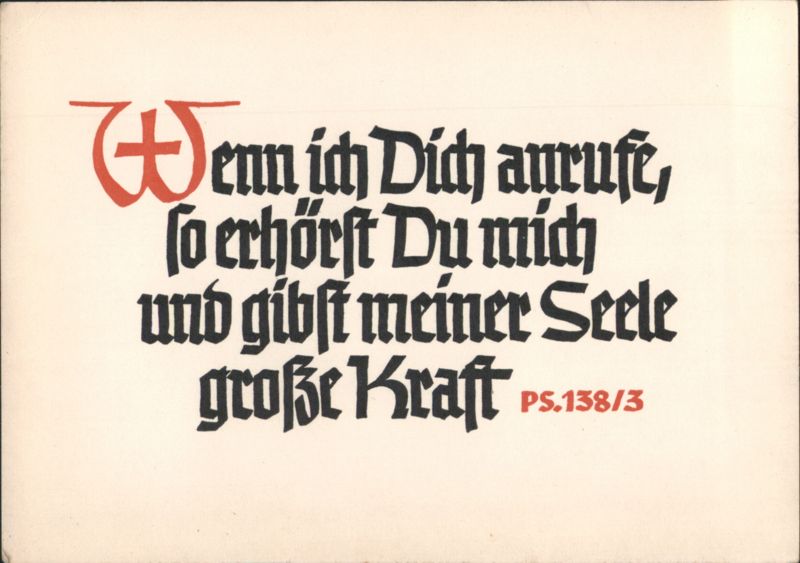 Wenn ich Dich anrufe,
so erhörst Du mich
und gibst meiner Seele
große Kraft PS.138/3